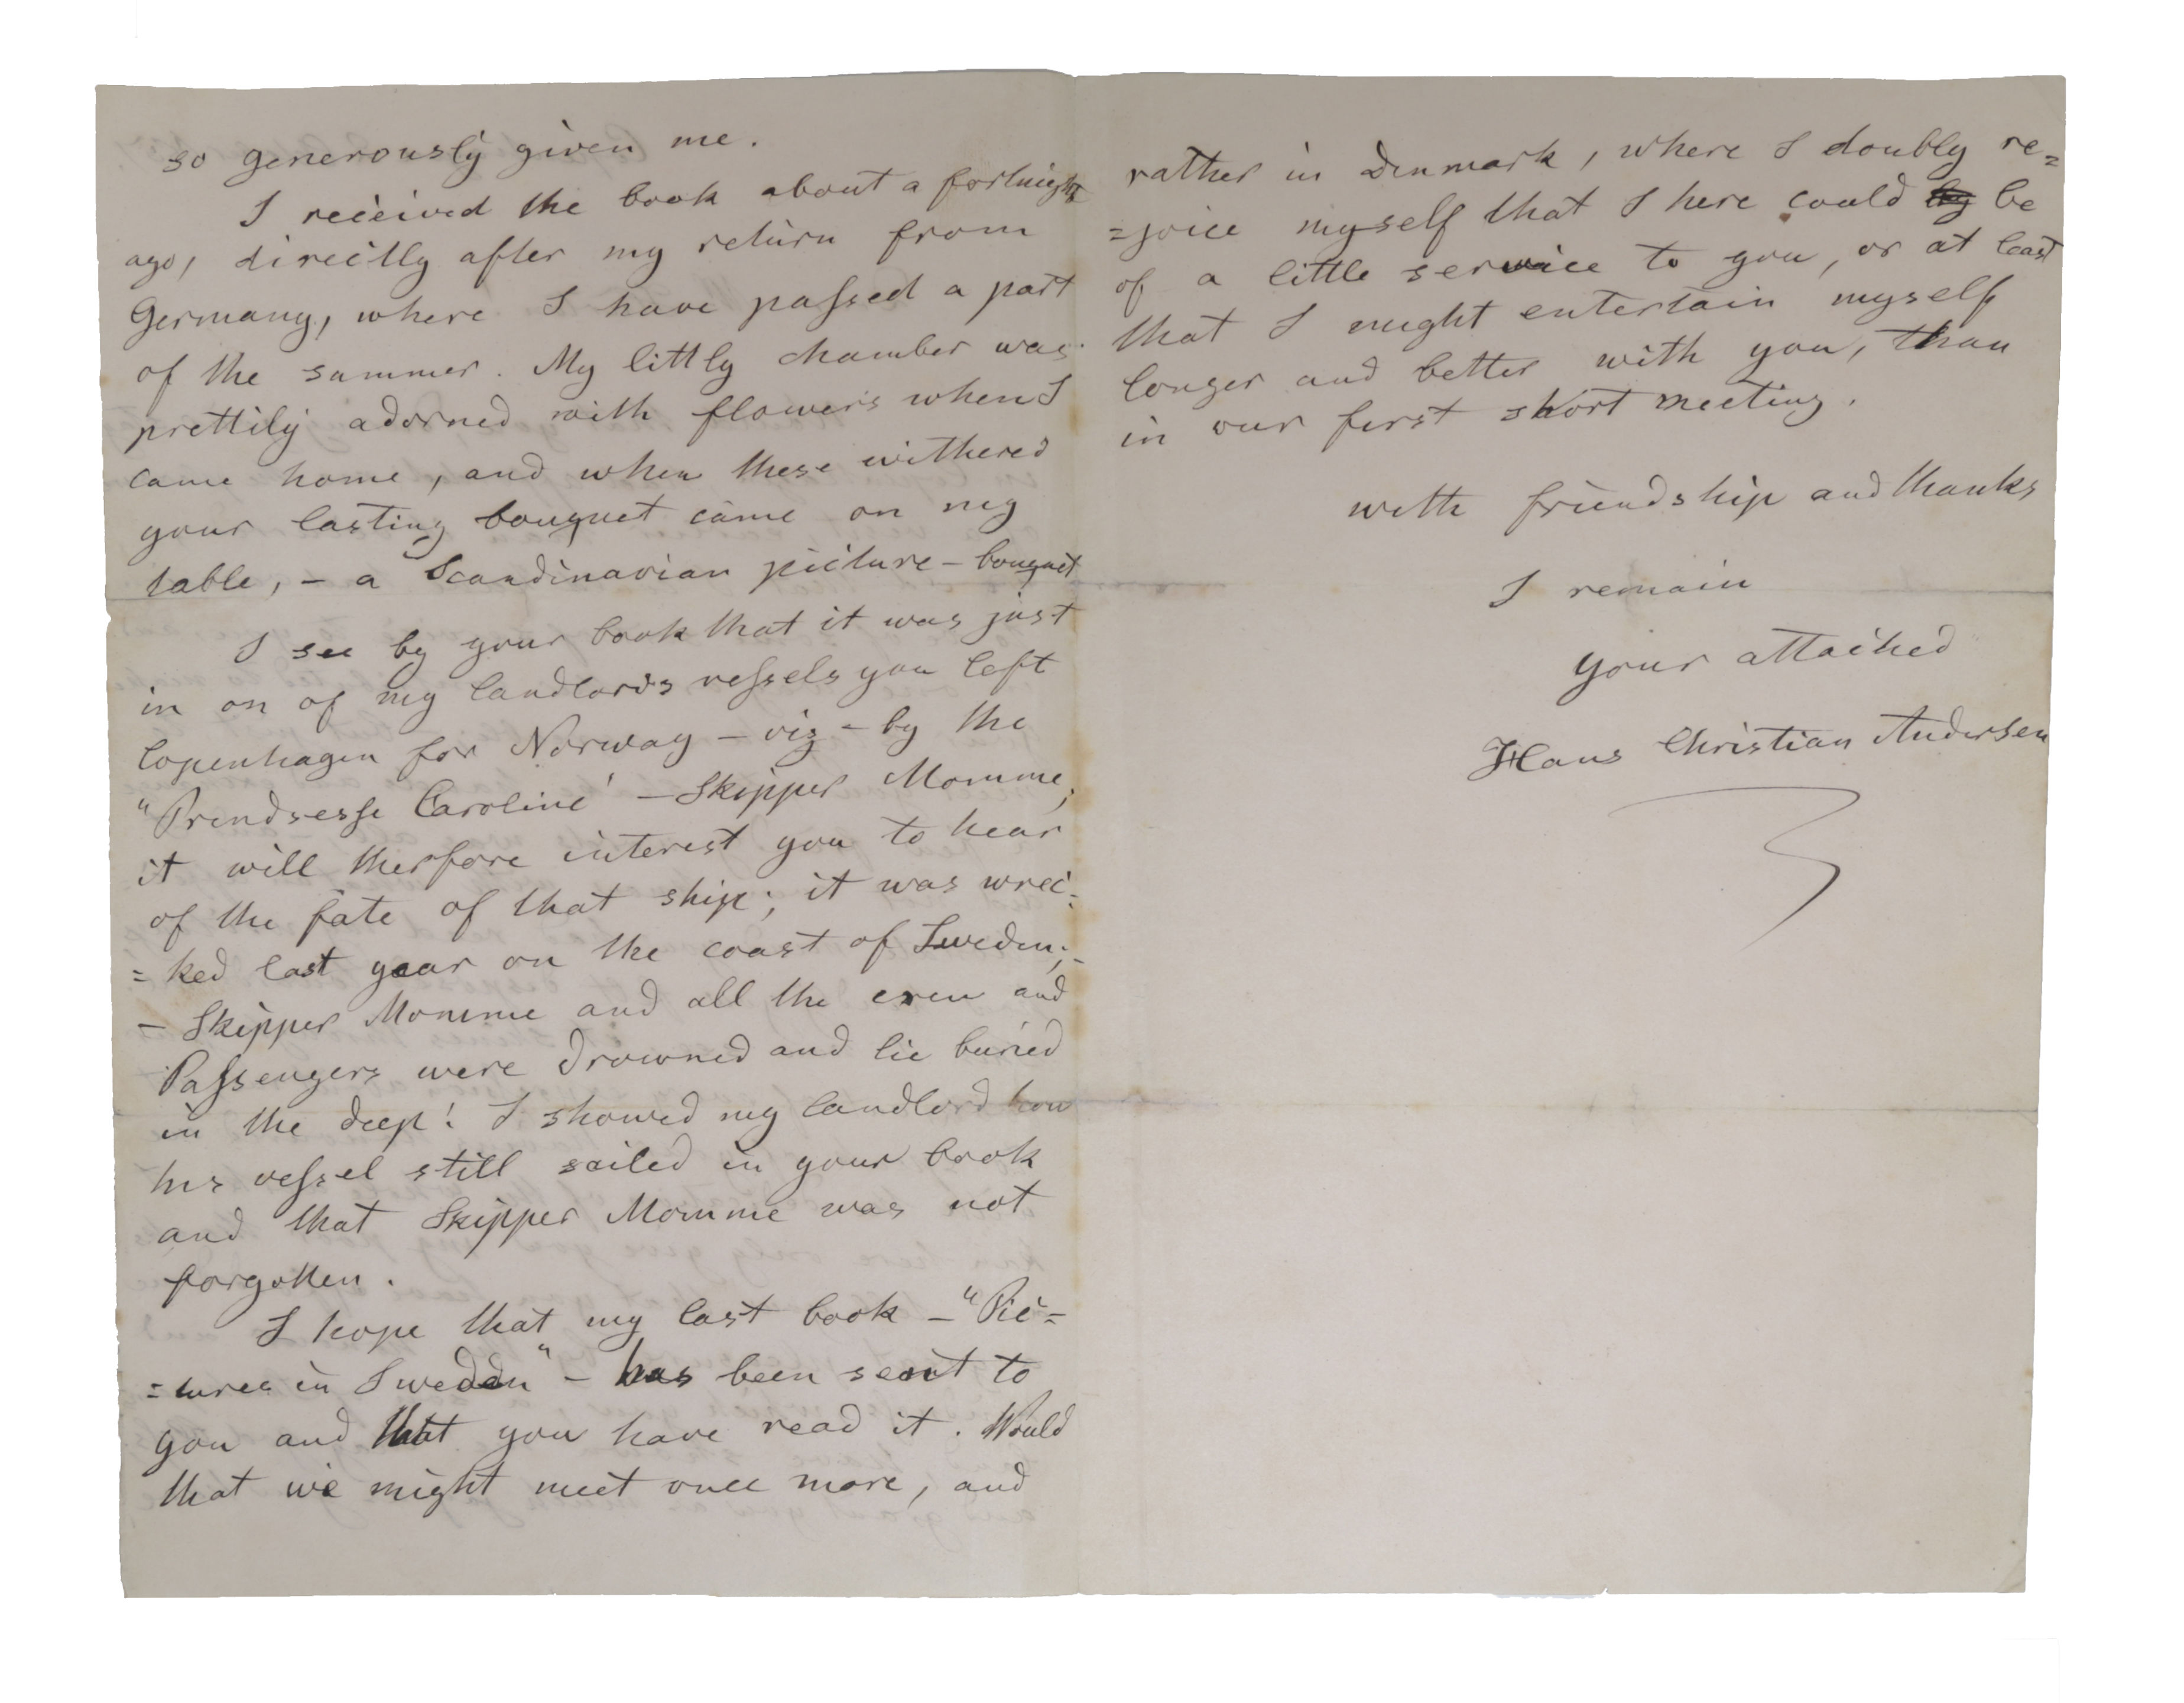 so generously given me.
I received the book about a fortnight
ago, directly after my return from
Germany, where I have passed a part
of the summer. My littly chamber was
prettily adorned with flowers when I
came home, and when these withered
your lasting bouquet came on my
table, – a Scandinavian picture – bouquet
I see by your book that it was just
in on of my landlords vessels you left
Copenhagen for Norway – viz – by the
"Prindsesse Caroline' – Skipper Momme,
it will therfore interest you to hear
of the fate of that ship; it was wrec=
=ked last year on the coast of Sweden;–
– Skipper Momme and all the crew and
Passengers were drowned and lie buried
in the deep! I showed my landlord how
his vessel still sailed in your book
and that Skipper Momme was not
forgotten.
I hope that my last book – "Pic=
=tures in Sweden" – has been sent to
you and that you have read it. Would
that we might meet once more, and
rather in Denmark, where I doubly re=
=joice myself that I here could be
of a little service to you, or at least
that I might entertain myself
longer and better with you, than
in our first short meeting.
with friendship and thanks
I remain
your attached
Hans Christian Andersen